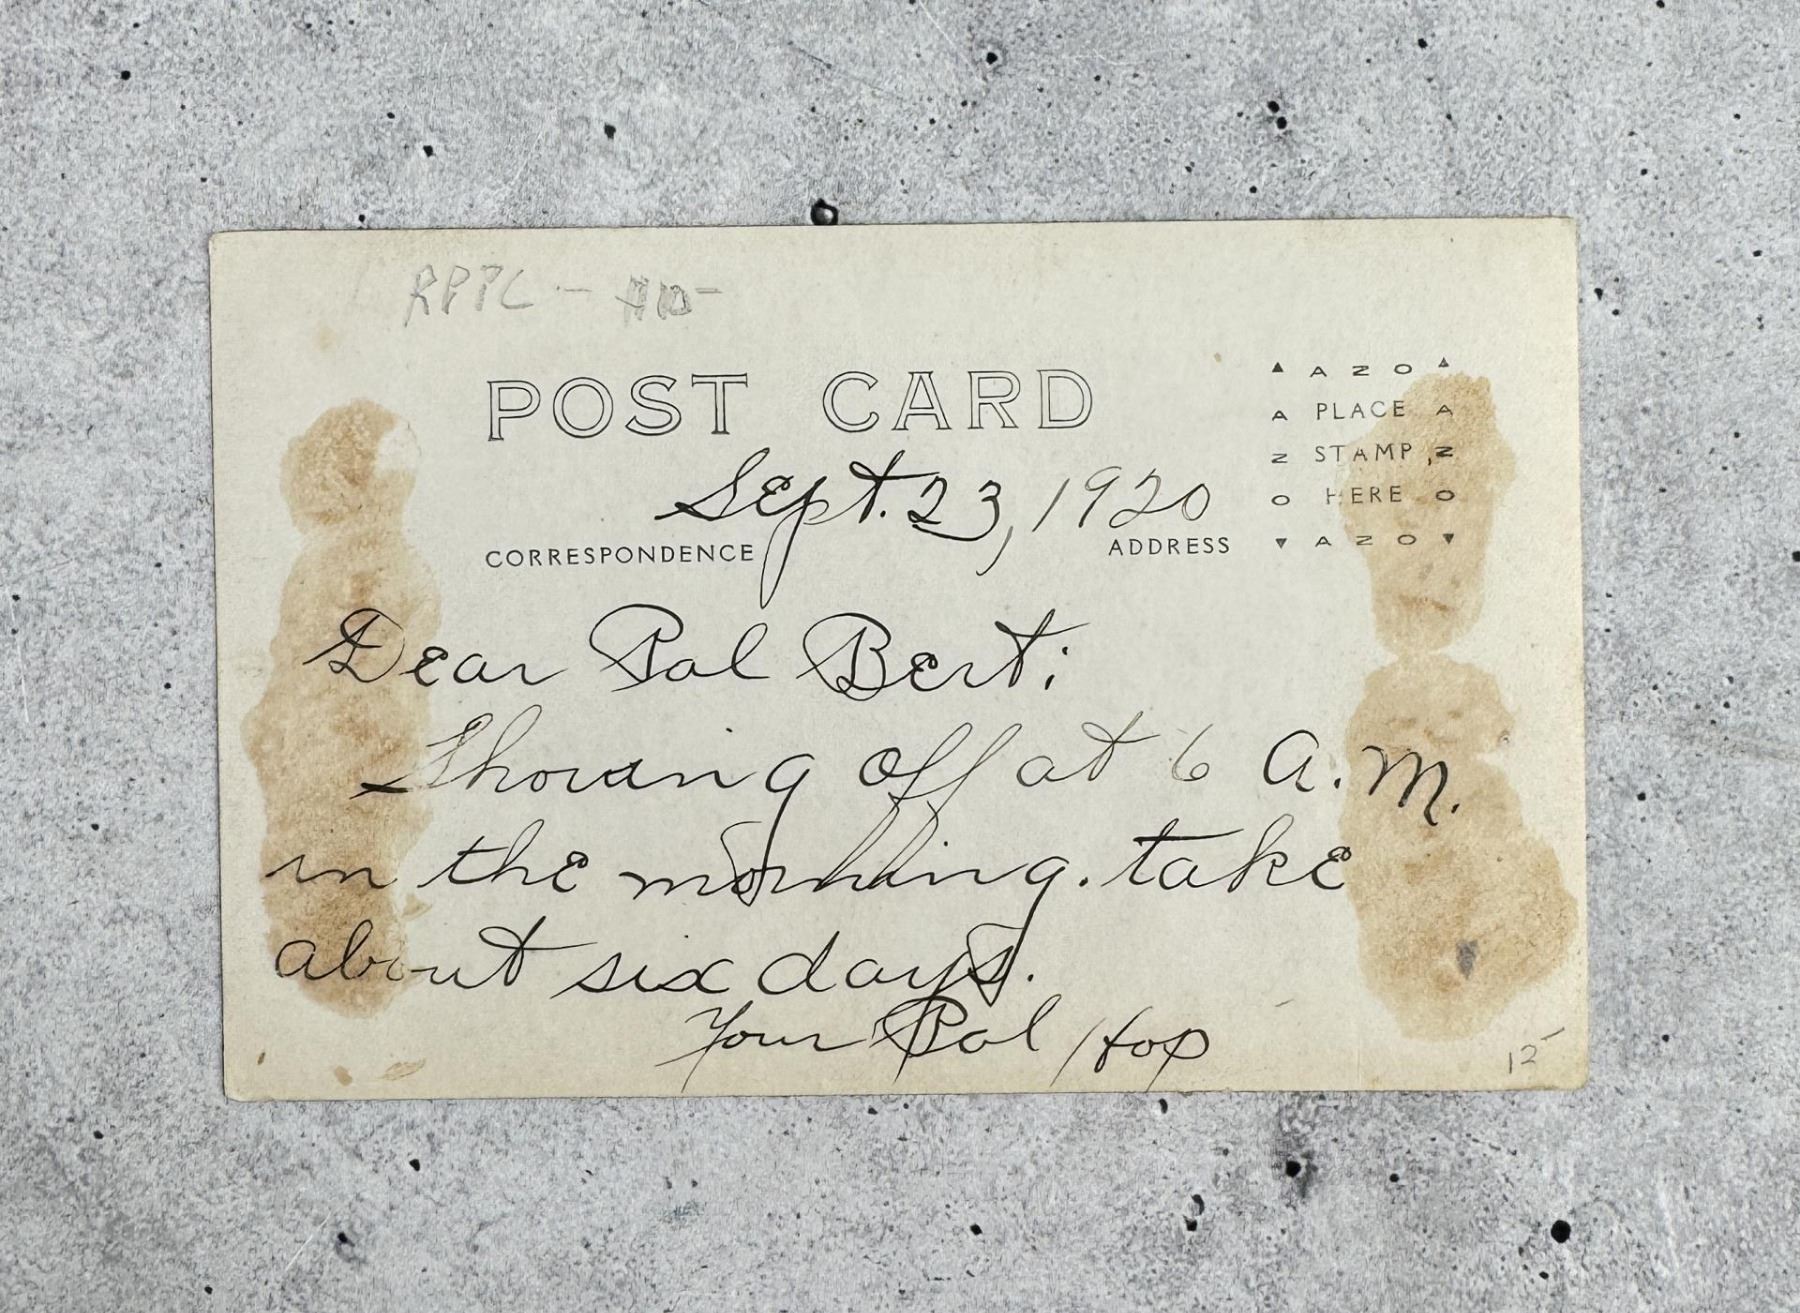 RPPC -
POST CARD
▲ AZO ▲
A PLACE A
Z STAMP Z
O HERE O
▼ AZO ▼
Sept. 23, 1920
CORRESPONDENCE
ADDRESS
Dear Pal Bert:
Shoving off at 6 A.M.
in the morning. take
about six days.
Your Pal Hop
12-